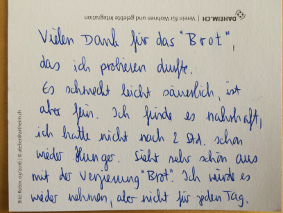 DAHEIM.CH Verein für Wohnen und gelebte Integration
Vielen Dank für das "Brot",
das ich probieren durfte.
Es schmeckt leicht säuerlich, ist
aber fein. Ich finde es nahrhaft,
ich hatte nicht nach 2 Std. schon
wieder Hunger. Sieht sehr schön aus
mit der Verzierung "Brot". Ich würde es
wieder nehmen, aber nicht für jeden Tag.